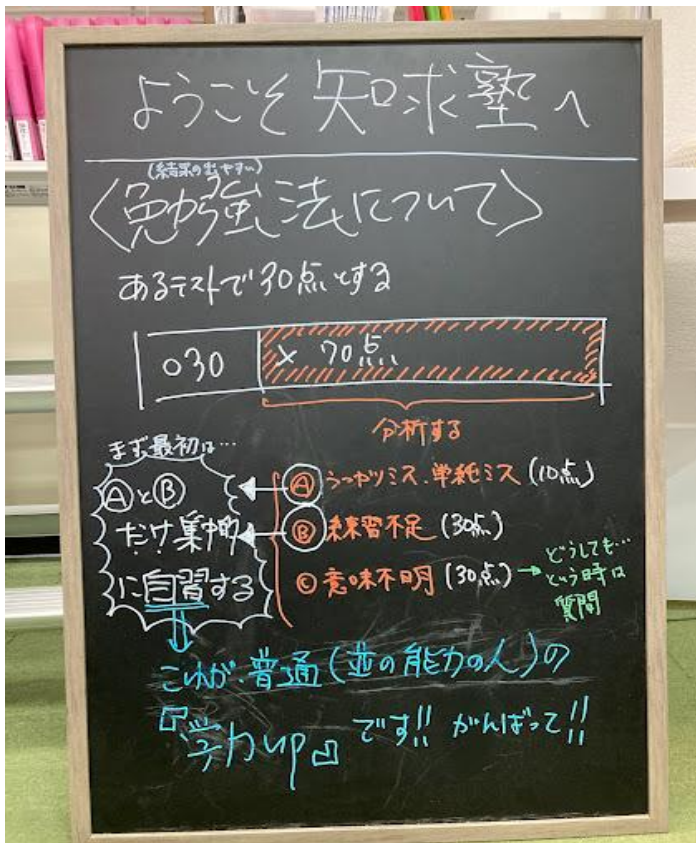 ようこそ 知求塾へ
(結果の出やすい)
〈勉強法について〉
あるテストで30点とする
○30
× 70点
分析する
まず最初は…
ⒶとⒷ
だけ集中的
に自習する
Ⓐ うっかりミス、単純ミス (10点)
Ⓑ 練習不足 (30点)
Ⓒ 意味不明 (30点) →
どうしても…
という時は
質問
これが、普通(並の能力の人)の
『学力up』です!! がんばって!!